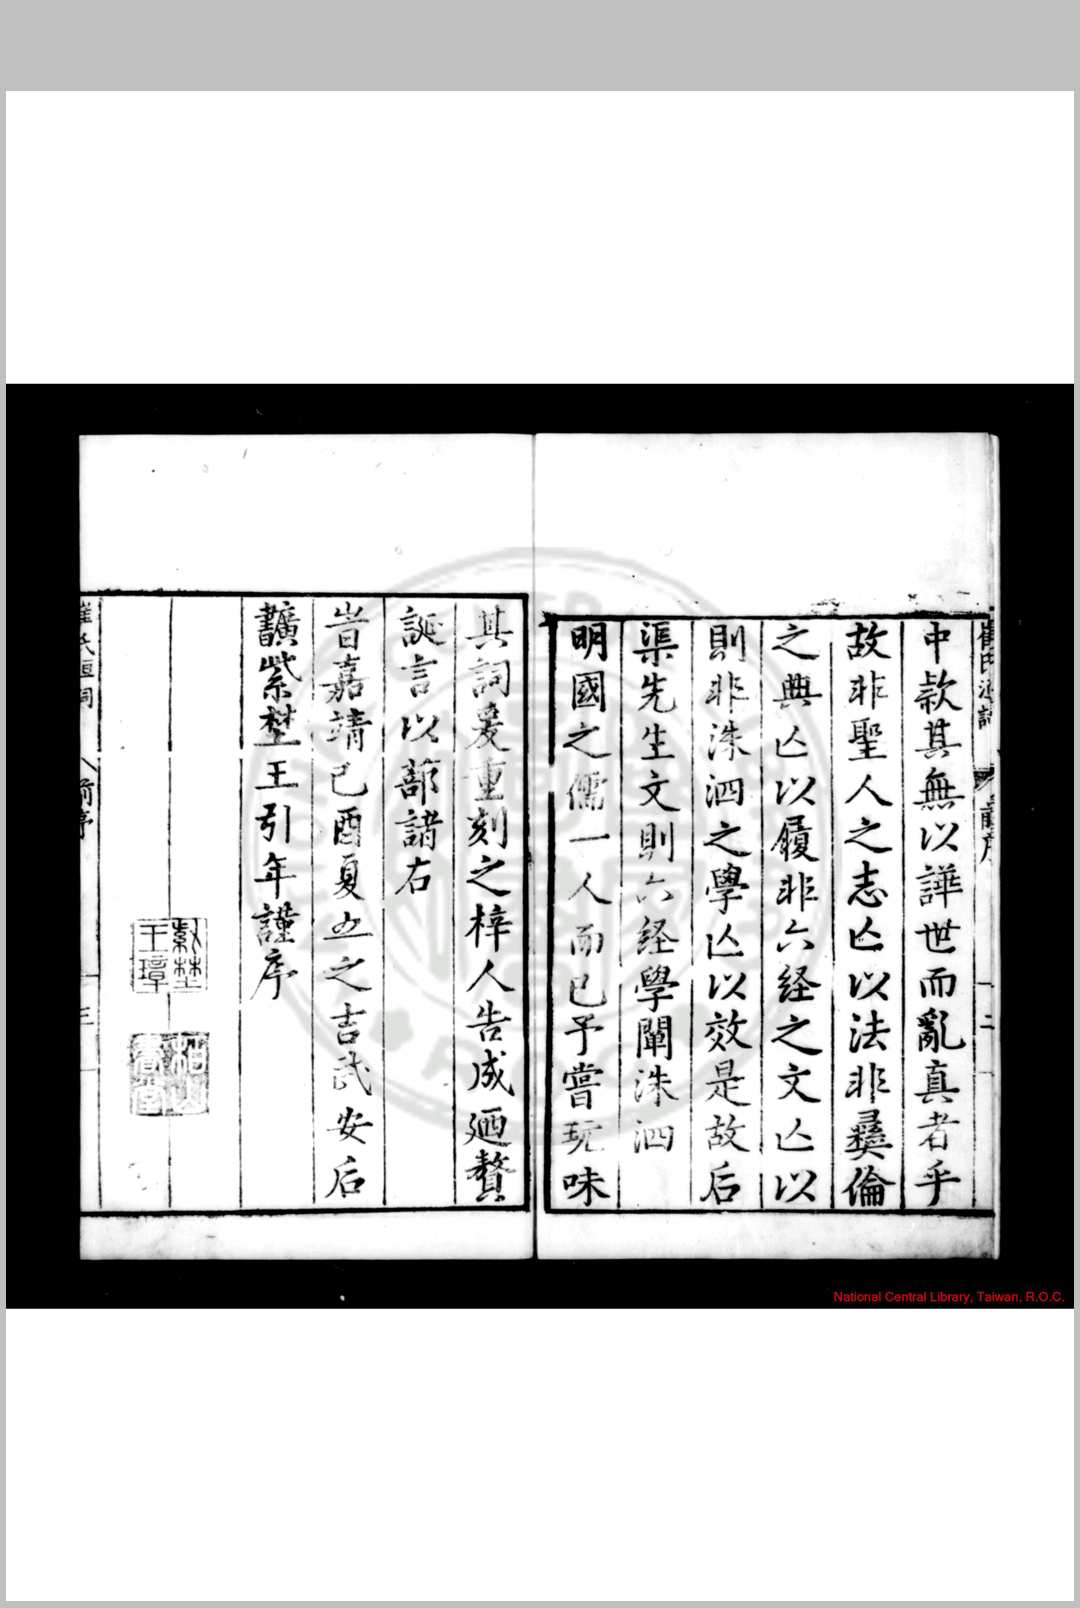 中款其無以譁世而亂真者乎
故非聖人之志亾以法非彝倫
之典亾以履非六経之文亾以
則非洙泗之學亾以效是故后
渠先生文則六経學闡洙泗
明國之儒一人而已予嘗玩味
崔氏洹詞
前序
二
其詞爰重刻之梓人告成廼贅
誕言以蔀諸右
旹嘉靖己酉夏五之吉武安后
學紫埜王引年謹序
崔氏洹詞
前序
三
National Central Library, Taiwan, R.O.C.